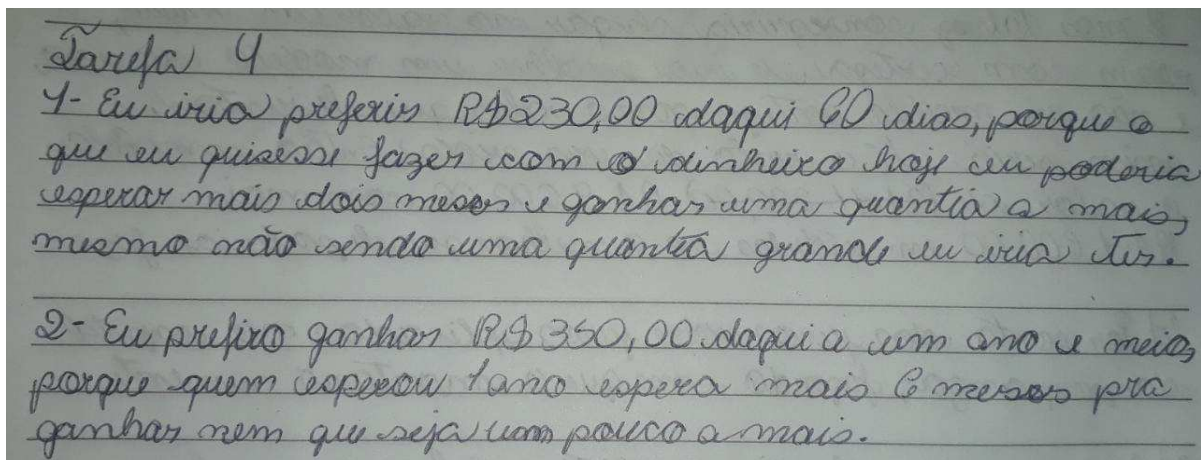 Tarefa 4
1- Eu iria preferir R$230,00 daqui 60 dias, porque o
que eu quisesse fazer com o dinheiro hoje eu poderia
esperar mais dois meses e ganhar uma quantia a mais,
mesmo não sendo uma quantia grande eu iria ter.
2- Eu prefiro ganhar R$ 350,00 daqui a um ano e meio,
porque quem esperou 1 ano espera mais 6 meses pra
ganhar nem que seja um pouco a mais.